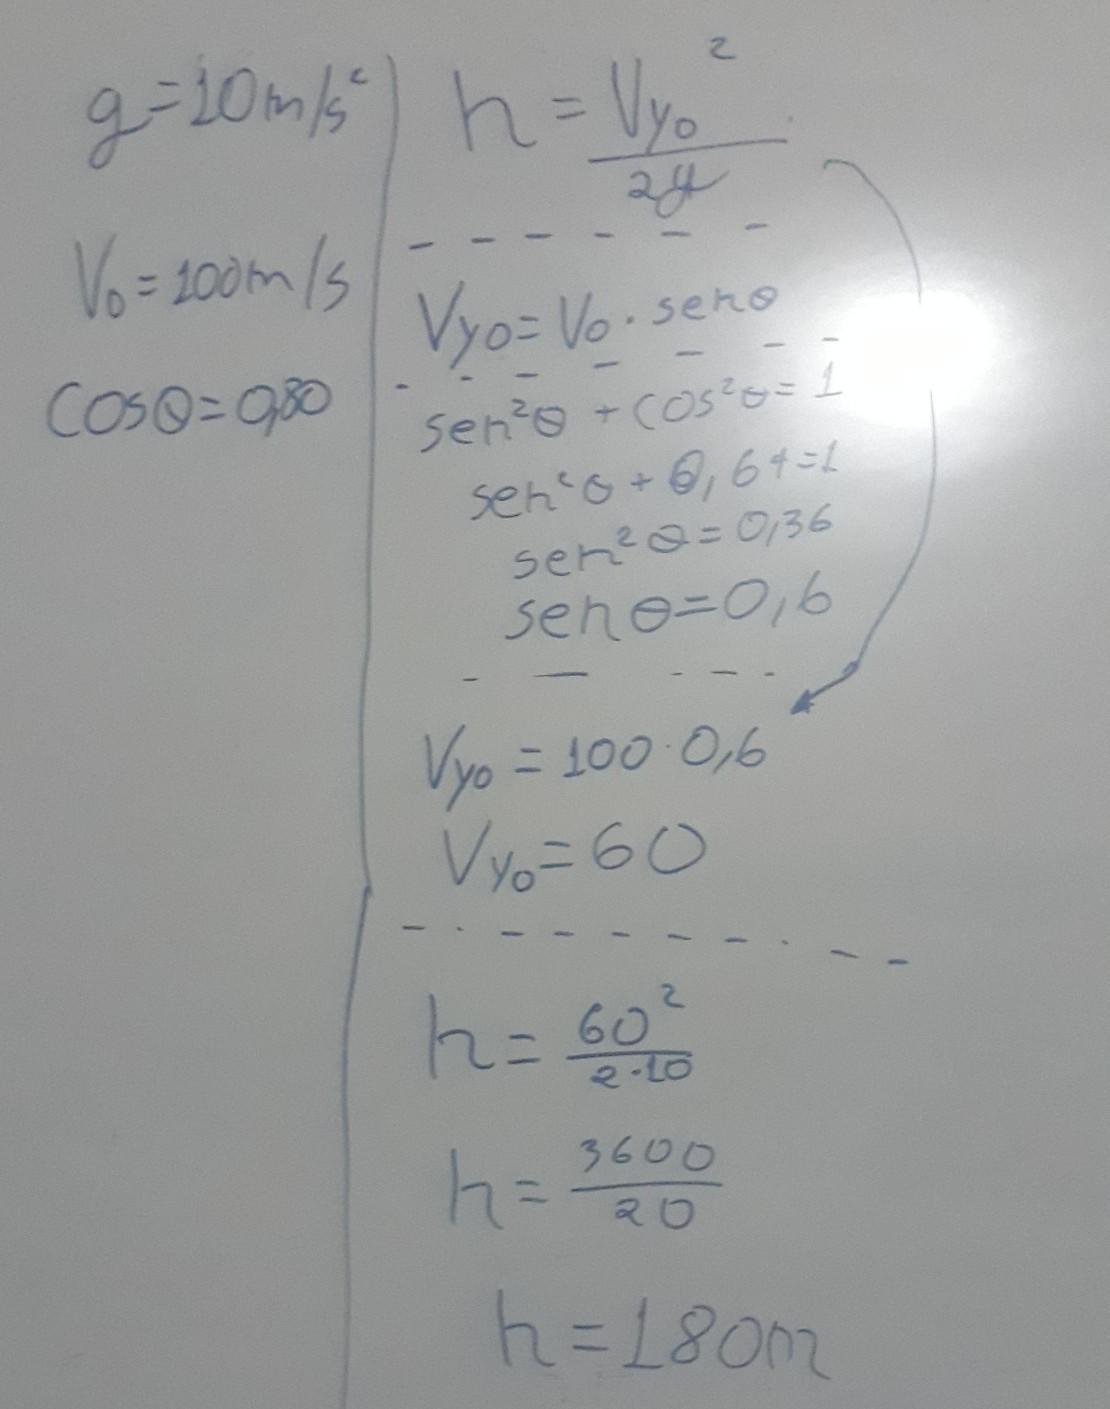 g=10m/s²
V₀=100m/s
cosθ=0,80
h = Vy₀²
2g
Vy₀=V₀·senθ
sen²θ + cos²θ=1
sen²θ + 0,64=1
sen²θ=0,36
senθ=0,6
Vy₀=100·0,6
Vy₀=60
h=60²
2·10
h=3600
20
h=180m